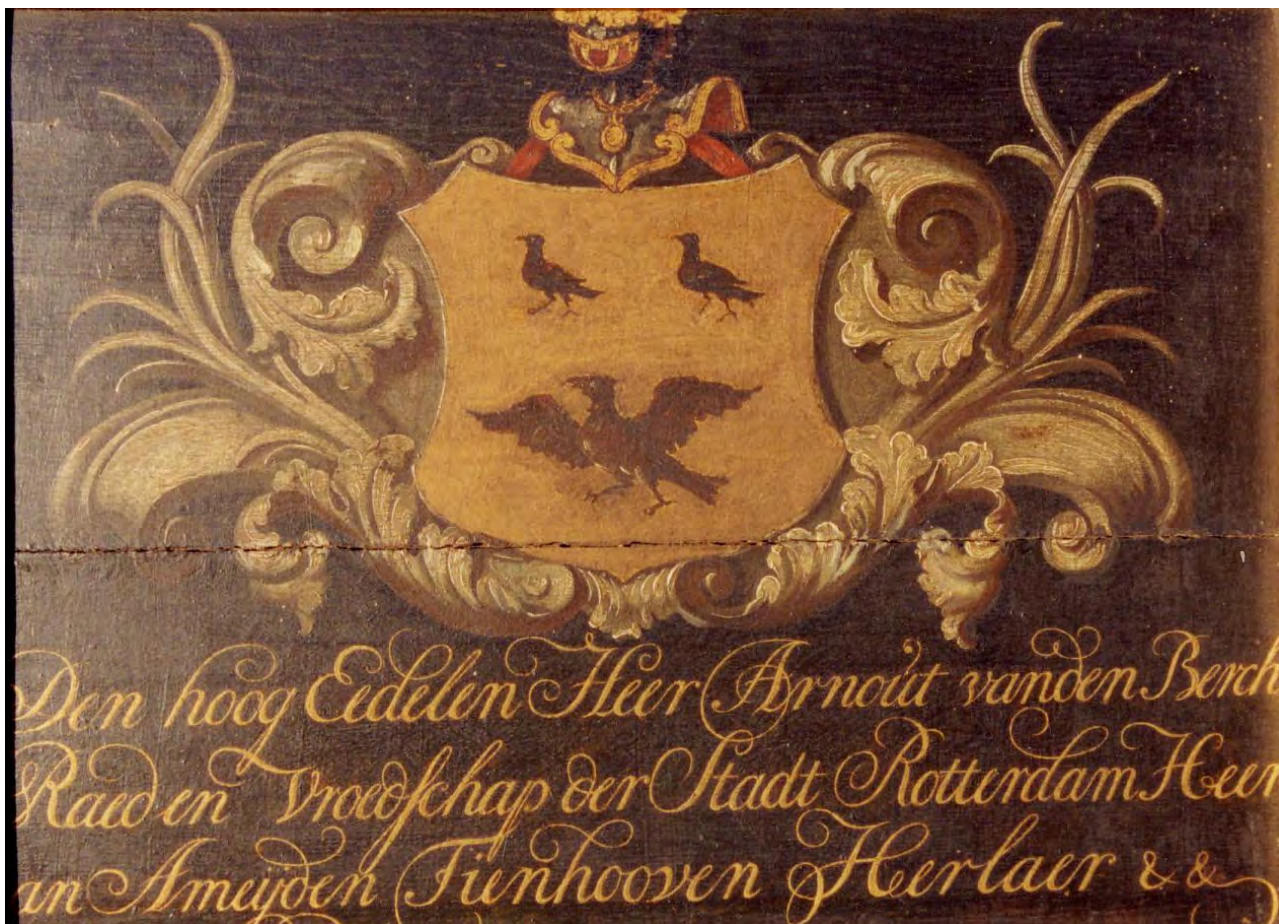 Den hoog Eedelen Heer Arnout vanden Berch
Raed en Vroedschap der Stadt Rotterdam Heer
an Ameyden Tienhooven Herlaer & &